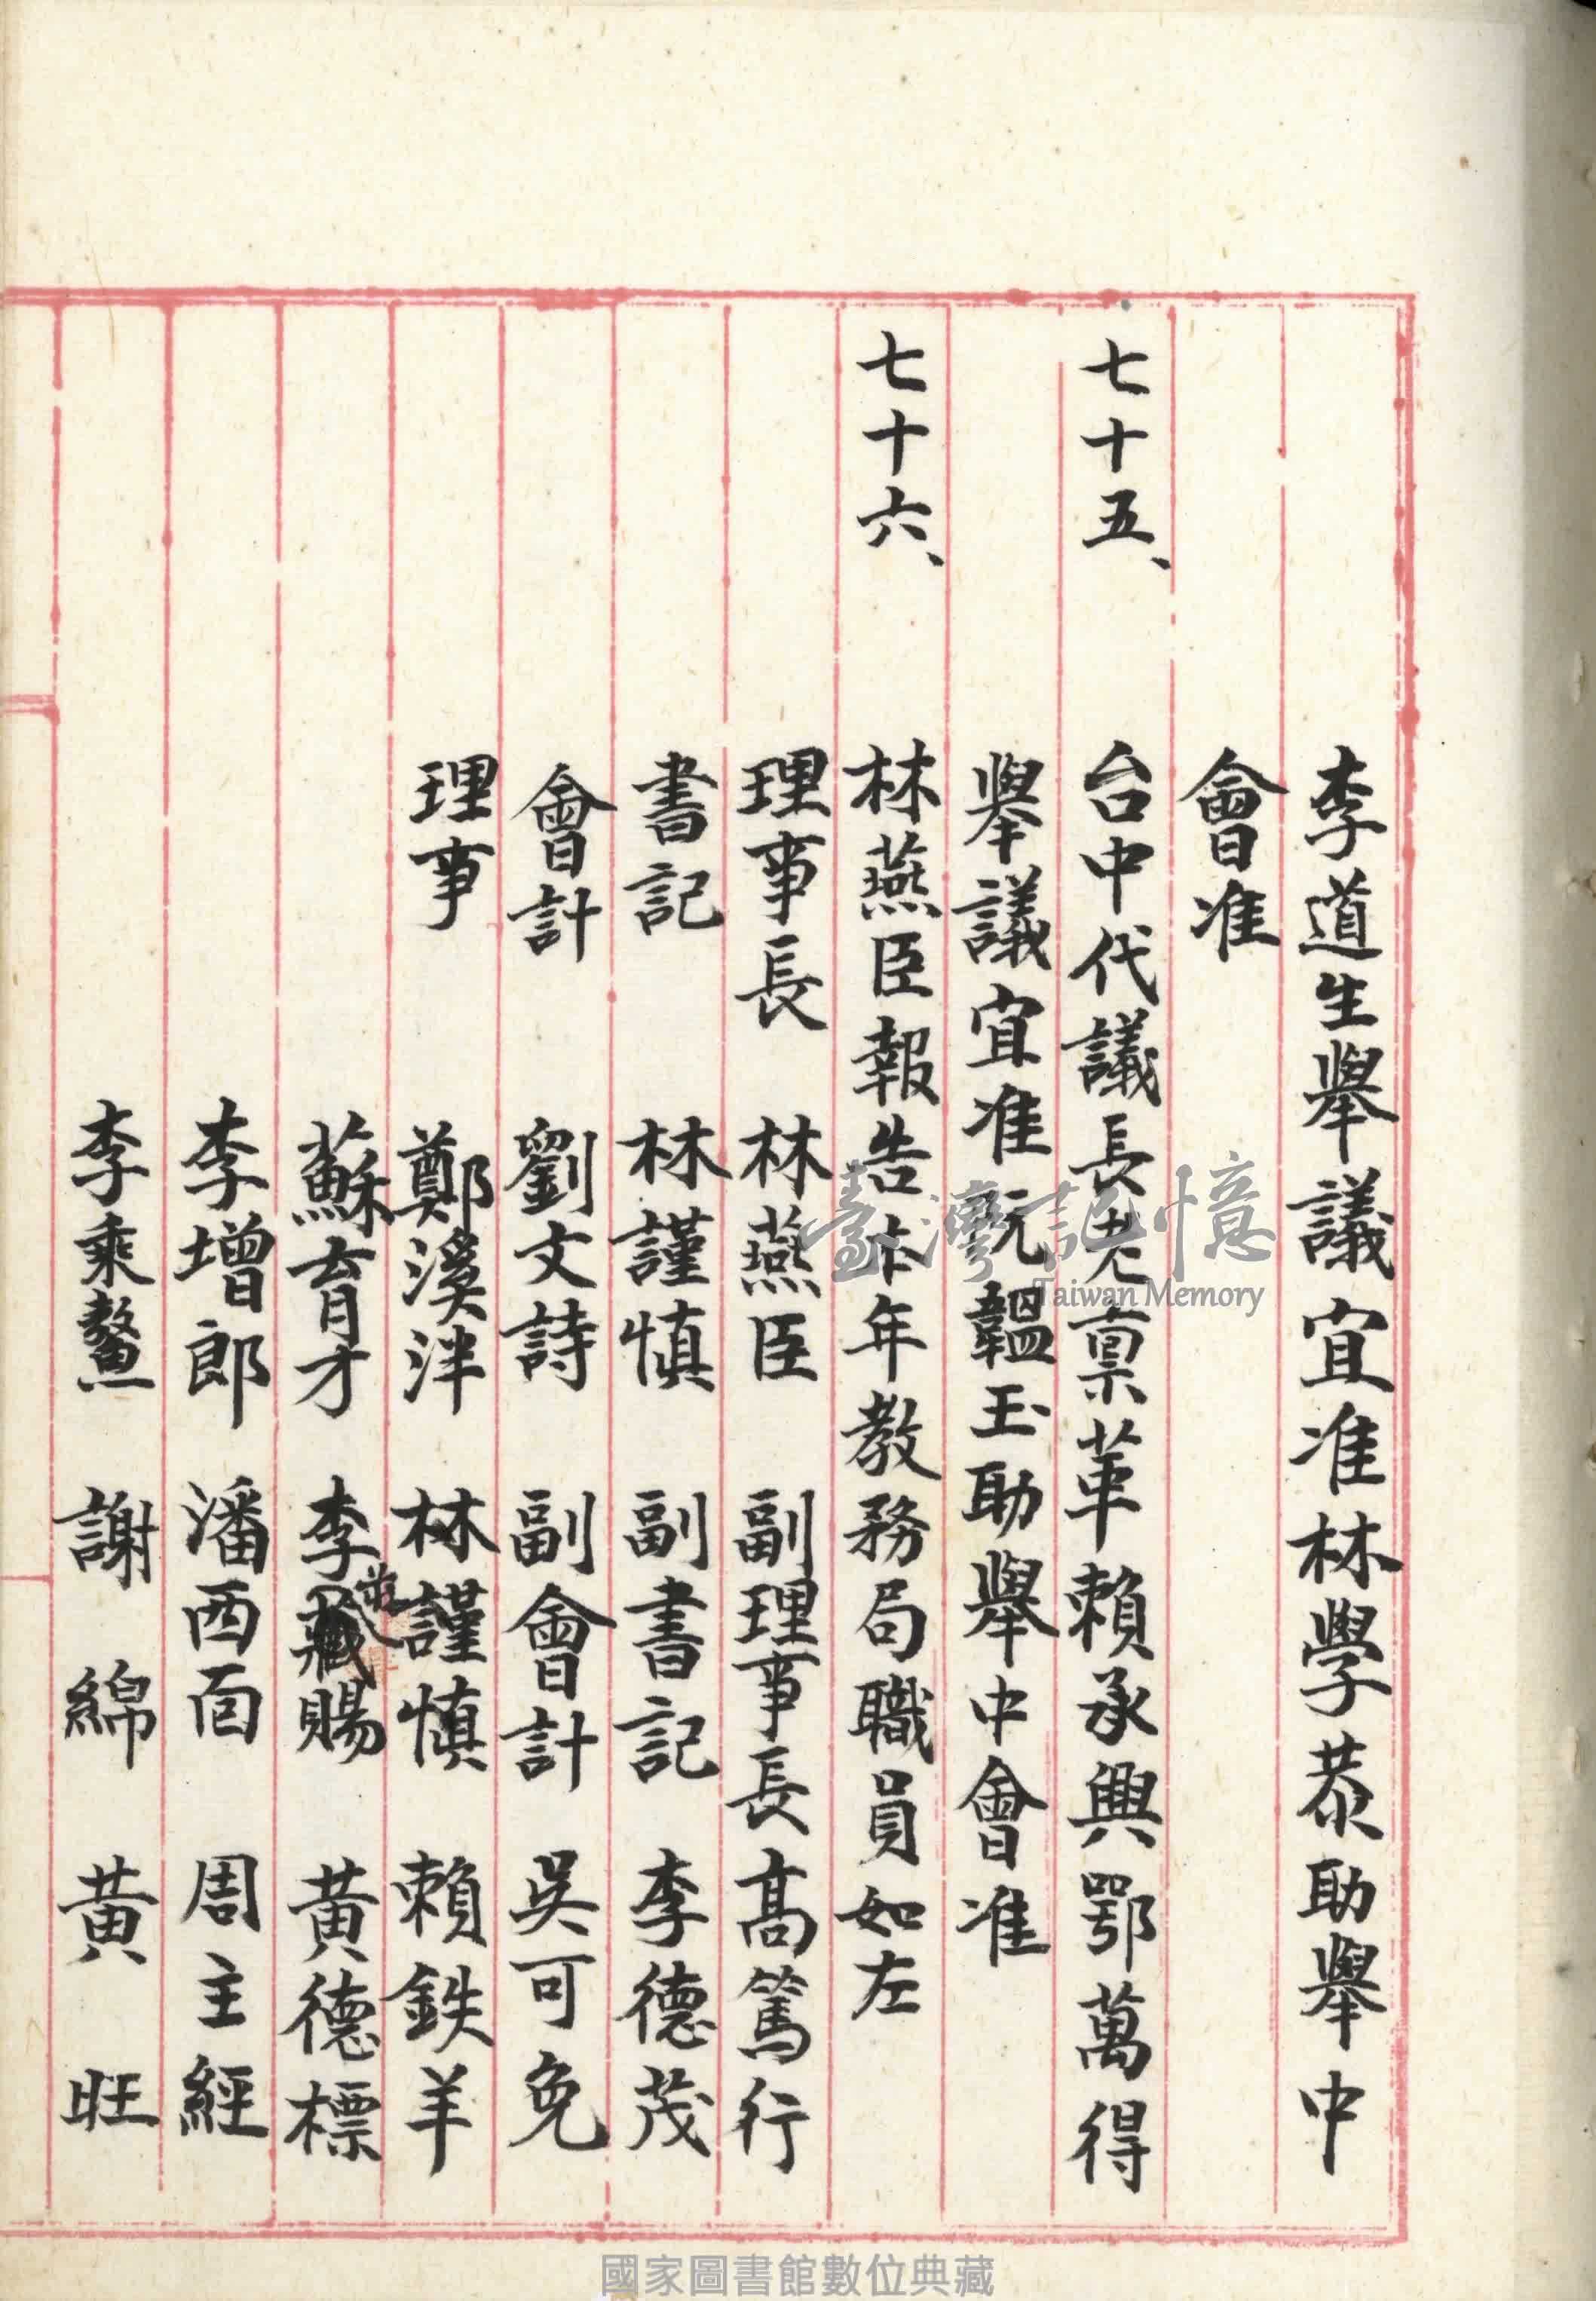 李道生舉議宜准林學恭助舉中
會准
七十五、 台中代議長老稟革賴承興鄂萬得
舉議宜准阮韞玉助舉中會准
七十六、 林燕臣報告本年教務局職員如左
理事長 林燕臣 副理事長 高篤行
書記 林謹慎 副書記 李德茂
會計 劉文詩 副會計 吳可免
理事 鄭溪泮 林謹慎 賴鉄羊
蘇育才 李天賜 黃德標
李增郎 潘西面 周主經
李乘鰲 謝綿 黃旺
臺灣記憶
Taiwan Memory
國家圖書館數位典藏